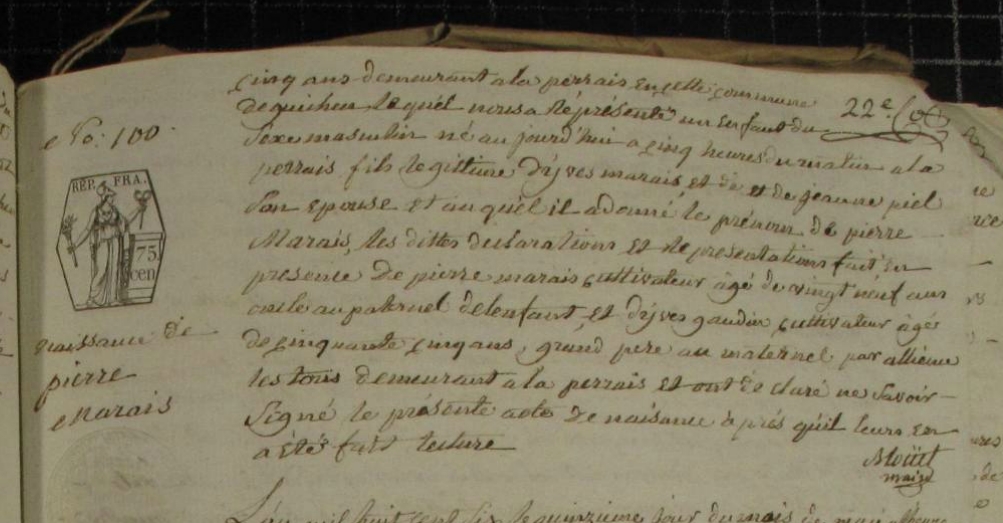 cinq ans demeurant a la perrais en cette commune
de guichen lequel nous a représenté un enfant du
22e.
No: 100.
sexe masculin né aujourd'hui a cinq heures du matin a la
REP. FRA.
perrais fils legittime d'yves marais et de et de jeanne piel
son epouse et auquel il a donné le prénom de pierre
75
cen
Marais, les dittes declarations et representations fait en
presence de pierre marais cultivateur âgé de vingt neuf ans
oncle au paternel de lenfant, et d'yves gaudin cultivateur âgé
naissance de
pierre
Marais
de cinquante cinq ans, grand pere au maternel par allience
les tous demeurant a la perrais et ont déclaré ne savoir
signé le présente acte de naisance après qu'il leurs en
a été fait lecture
Moüet
maire
L'an mil huit cent six le quinzieme jour du mois de mai